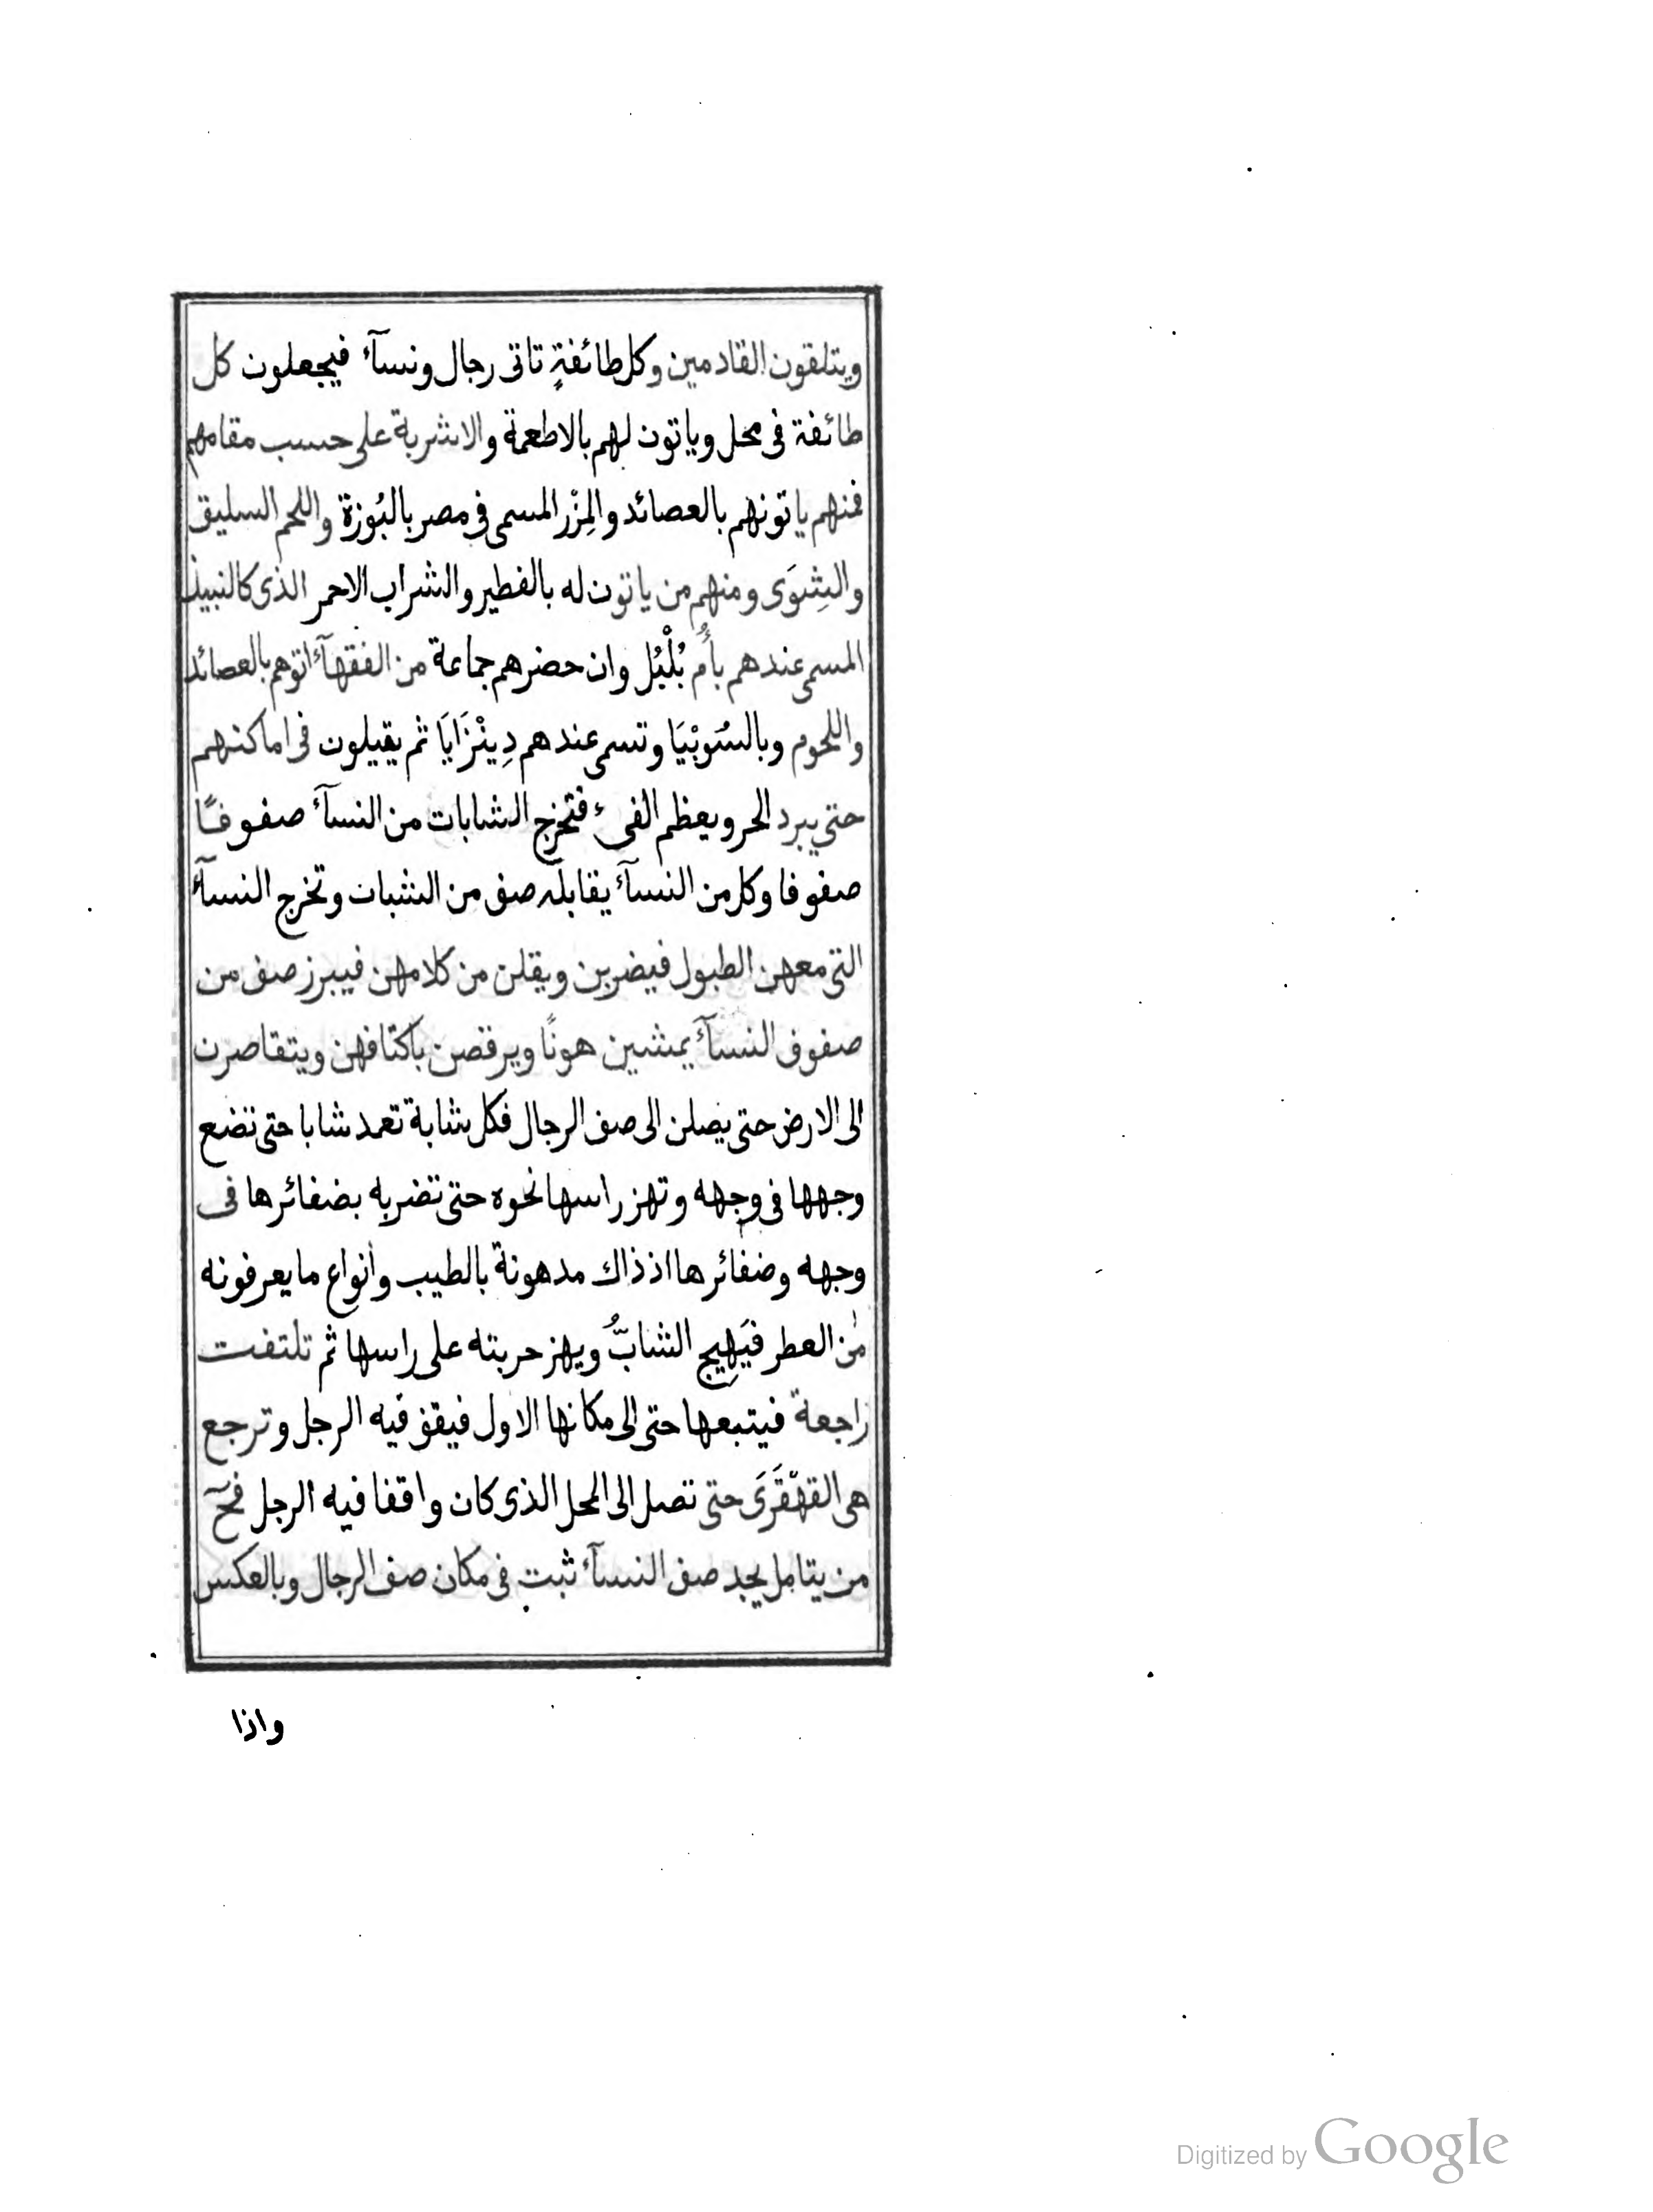 ويتلقون القادمين وكل طائفةٍ تاتى رجال ونسآء فيجعلون كل
طائفة فى محل وياتون لهم بالاطعمة والاشربة على حسب مقامهم
فمنهم ياتونهم بالعصائد والمِزْر المسمى فى مصر بالبُوزة واللحم السليق
والشِوَى ومنهم من ياتون له بالفطير والشراب الاحمر الذى كالنبيذ
المسمى عندهم بأُم بُلْبُل وان حضرهم جماعة من الفقهآء اتوهم بالعصائد
واللحوم وبالسُوبْيَا وتسمى عندهم دِينْزَايَا ثم يقيلون فى اماكنهم
حتى يبرد الحر ويعظم الفىء فتخرج الشابات من النسآء صفوفًا
صفوفا وكل من النسآء يقابله صف من الشبات وتخرج النسآء
التى معهن الطبول فيضربن ويقلن من كلامهن فيبرز صف من
صفوف النسآء يمشين هونًا ويرقصن باكتافهن ويتقاصرن
الى الارض حتى يصلن الى صف الرجال فكل شابة تعمد شابا حتى تضع
وجهها فى وجهه وتهز راسها نحوه حتى تضربه بضفائرها فى
وجهه وضفائرها اذ ذاك مدهونة بالطيب وأنواع ما يعرفونه
من العطر فيَهِيج الشابُّ ويهز حربته على راسها ثم تلتفت
راجعة فيتبعها حتى الى مكانها الاول فيقف فيه الرجل وترجع
هى القهْقَرَى حتى تصل الى المحل الذى كان واقفا فيه الرجل فحٓ
من يتامل يجد صف النسآء ثبت فى مكان صف الرجال وبالعكس
واذا
Digitized by Google